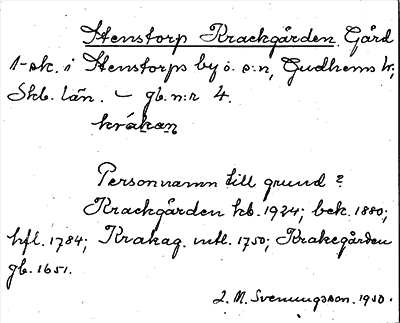 Stenstorp Krackgården Gård
1-sk. i Stenstorps by o. s:n, Gudhems hr;
Skb. län. – gb. n:r 4.
kråkan
Personnamn till grund?
Krackgården kb. 1924; bek. 1880;
hfl. 1784; Krakag. mtl. 1750; Krakegården
gb. 1651.
L. M. Svenungsson. 1950.